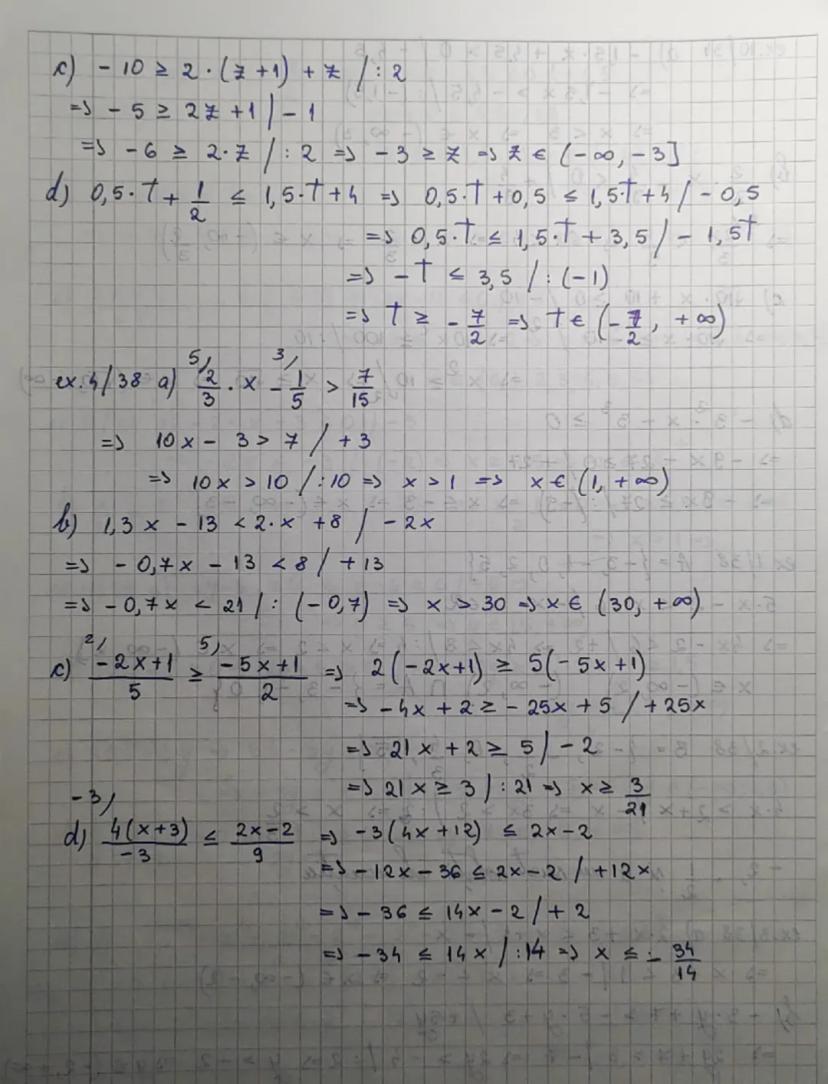 c) - 10 ≥ 2 · (z + 1) + z / : 2
=> - 5 ≥ 2z + 1 / - 1
=> - 6 ≥ 2 · z / : 2 => - 3 ≥ z => z ∈ (-∞, -3]
d) 0,5 · t + 1/2 ≤ 1,5 · t + 4 => 0,5 · t + 0,5 ≤ 1,5t + 4 / - 0,5
=> 0,5 · t ≤ 1,5 · t + 3,5 / - 1,5t
=> - t ≤ 3,5 / : (-1)
=> t ≥ - 7/2 => t ∈ (- 7/2, +∞)
ex. 4/38 a) 5) 2/3 · x - 3) 1/5 > 7/15
=> 10x - 3 > 7 / + 3
=> 10x > 10 / : 10 => x > 1 => x ∈ (1, +∞)
b) 1,3x - 13 < 2 · x + 8 / - 2x
=> - 0,7x - 13 < 8 / + 13
=> - 0,7x < 21 / : (-0,7) => x > 30 => x ∈ (30, +∞)
c) 2) (-2x+1)/5 ≥ 5) (-5x+1)/2 => 2(-2x+1) ≥ 5(-5x+1)
=> - 4x + 2 ≥ - 25x + 5 / + 25x
=> 21x + 2 ≥ 5 / - 2
=> 21x ≥ 3 / : 21 => x ≥ 3/21
d) -3) 4(x+3)/-3 ≤ (2x-2)/9 => -3(4x+12) ≤ 2x-2
=> - 12x - 36 ≤ 2x - 2 / + 12x
=> - 36 ≤ 14x - 2 / + 2
=> - 34 ≤ 14x / : 14 => x ≤ - 34/14